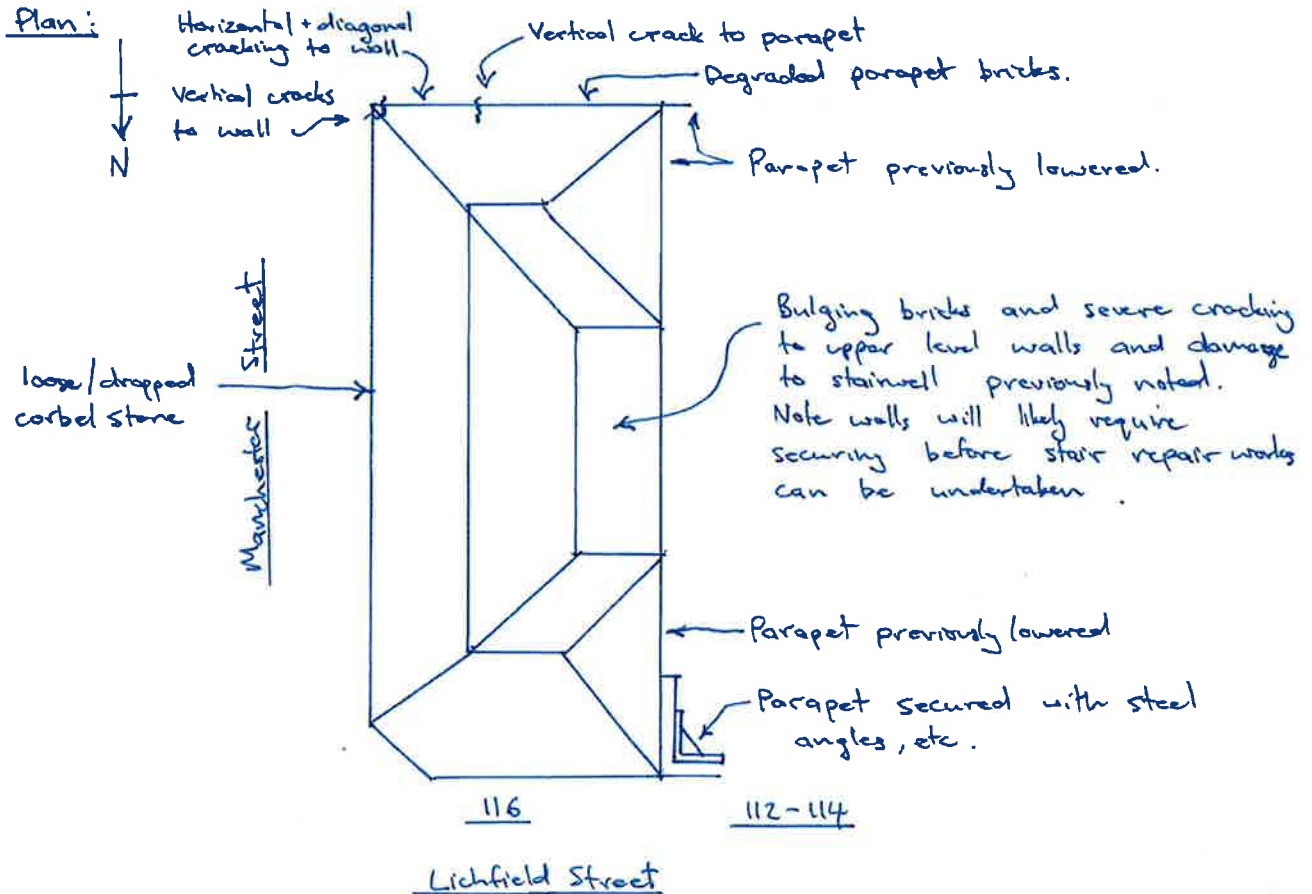 Plan:
N
Horizontal + diagonal
cracking to wall
Vertical crack to parapet
Degraded parapet bricks.
Vertical cracks
to wall
Parapet previously lowered.
Bulging bricks and severe cracking
to upper level walls and damage
to stairwell previously noted.
Note walls will likely require
securing before stair repair works
can be undertaken.
loose/dropped
corbel stone
Manchester Street
Parapet previously lowered
Parapet secured with steel
angles, etc.
116
112-114
Lichfield Street